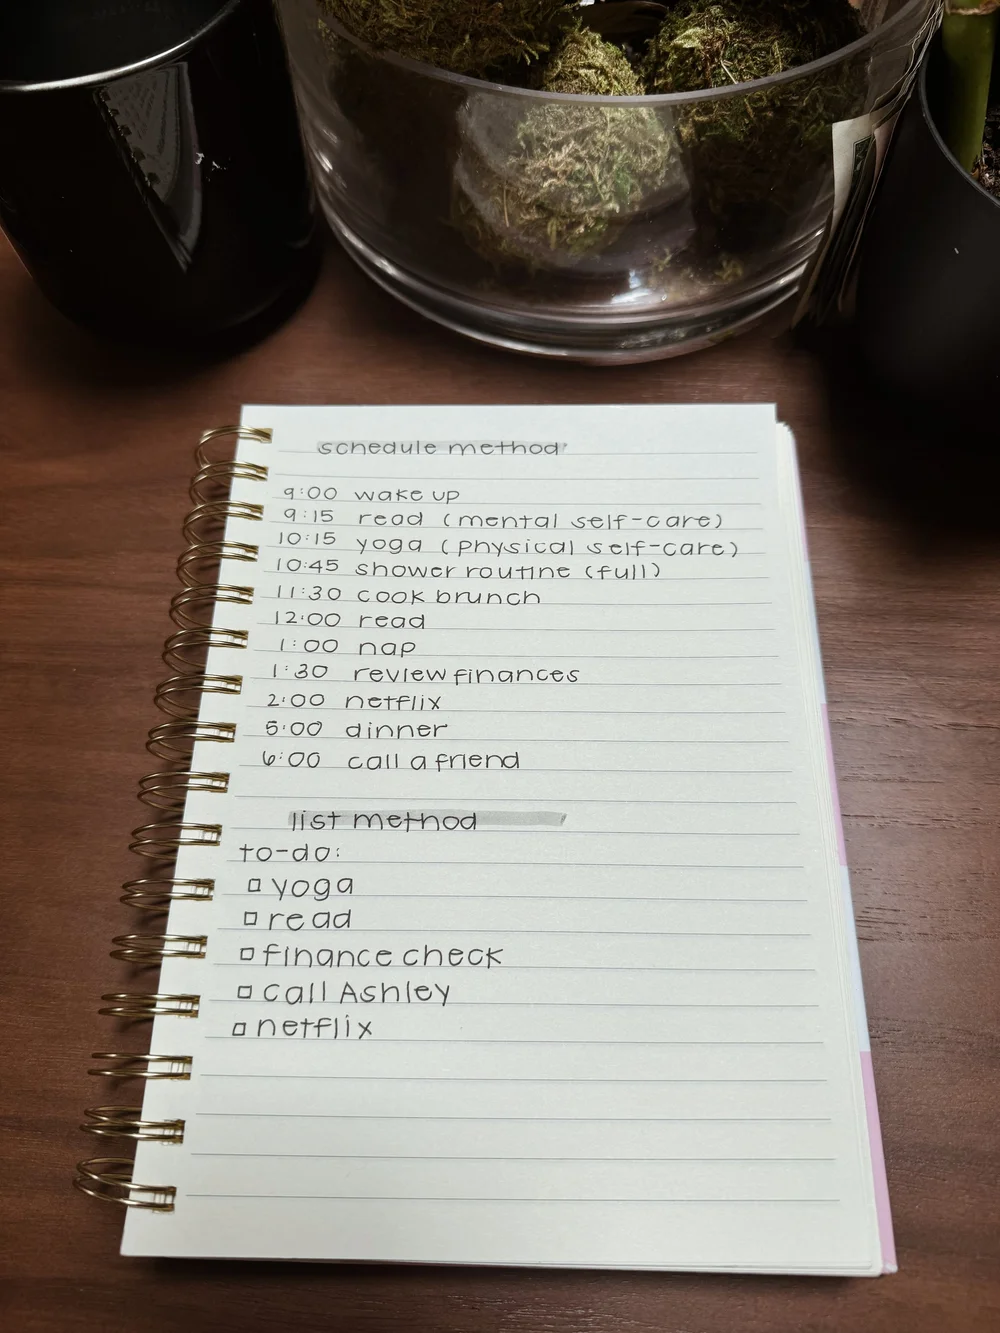 schedule method
9:00 wake up
9:15 read (mental self-care)
10:15 yoga (physical self-care)
10:45 shower routine (full)
11:30 cook brunch
12:00 read
1:00 nap
1:30 review finances
2:00 netflix
5:00 dinner
6:00 call a friend
list method
to-do:
□ yoga
□ read
□ finance check
□ call Ashley
□ netflix